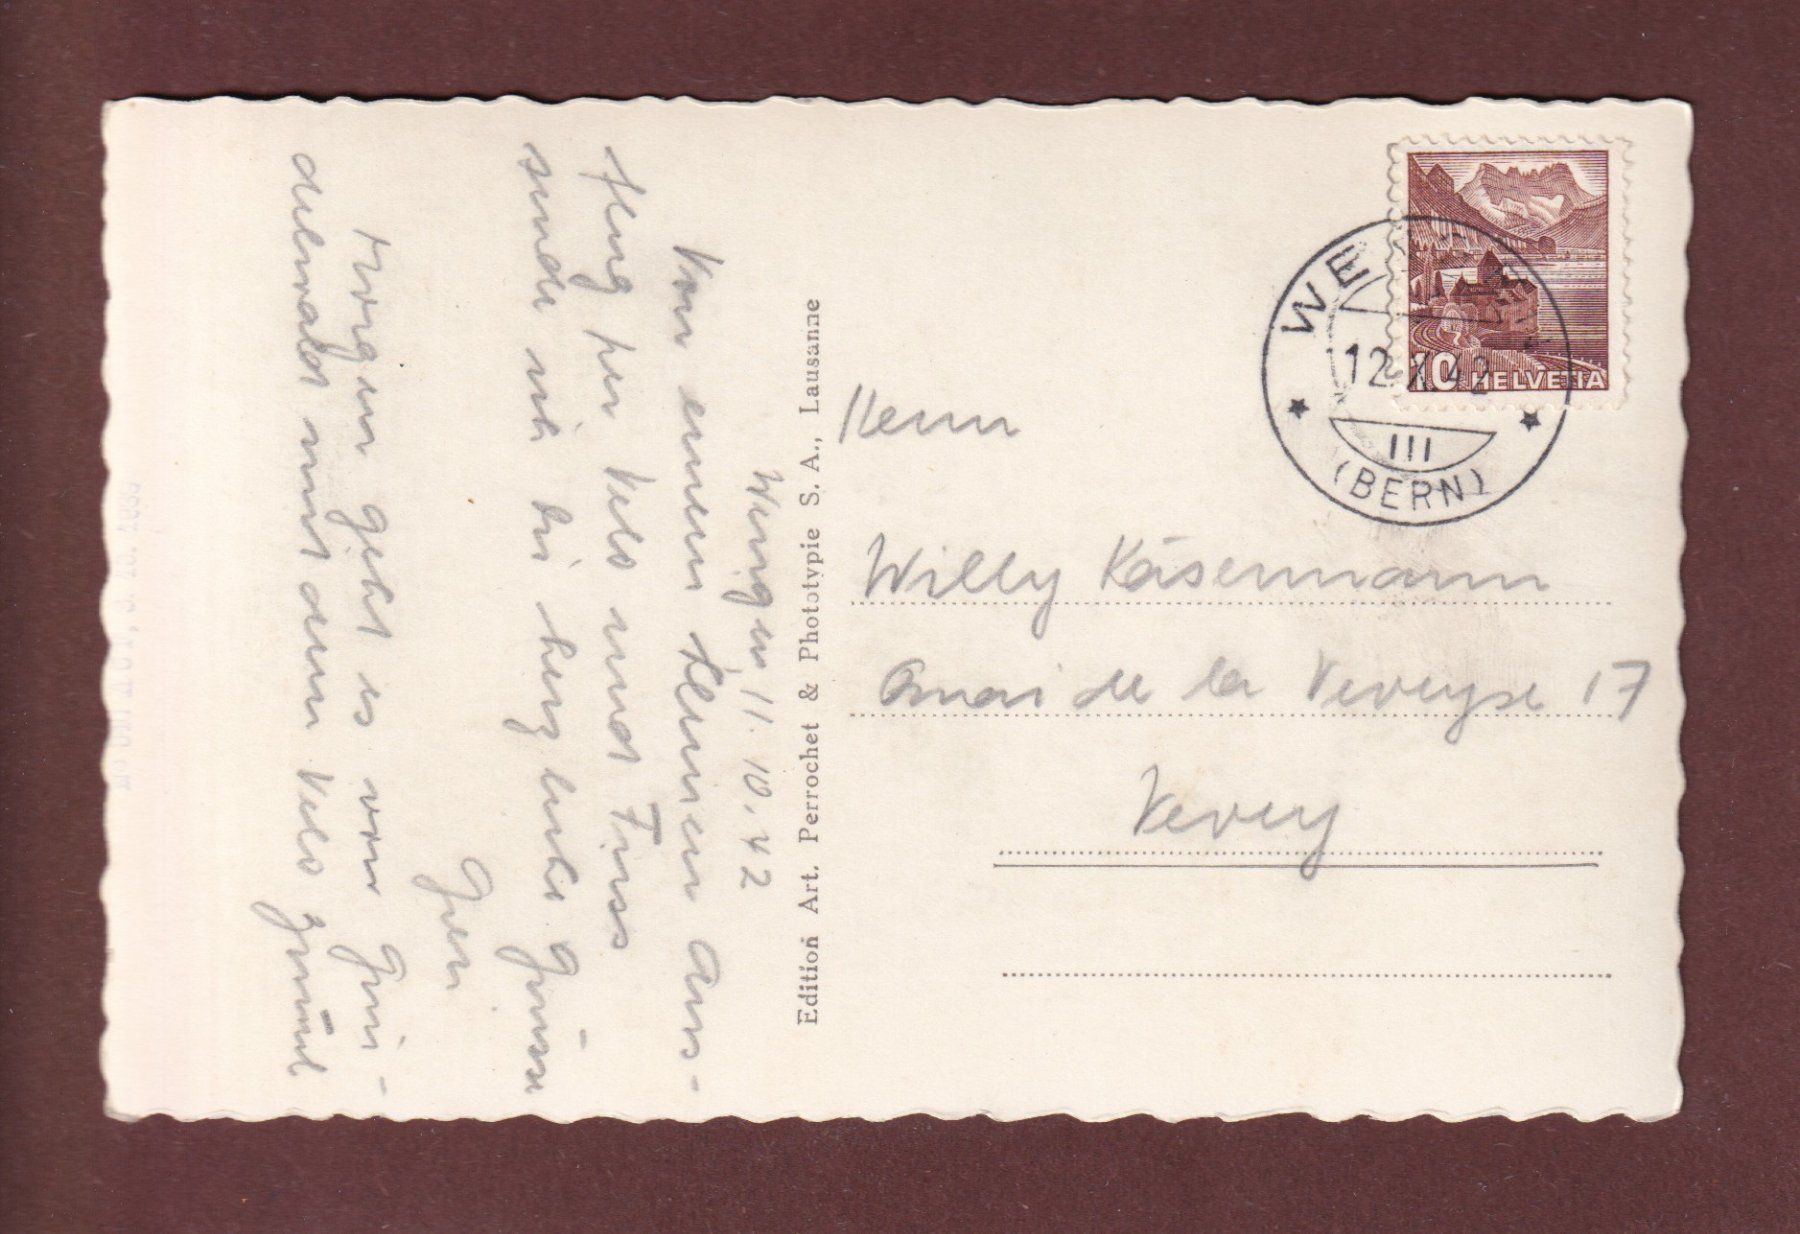 Wengen 11.10.42
Von einem kleinen Aus-
flug per Velo und Fuss
sende ich dir herzliche Grüsse
Morgen geht es von Grin-
delwald mit dem Velo zurück
Edition Art. Perrochet & Phototypie S. A., Lausanne
WE
12.X.42
III
(BERN)
10 HELVETIA
Herrn
Willy Käsermann
Quai de la Veveyse 17
Vevey